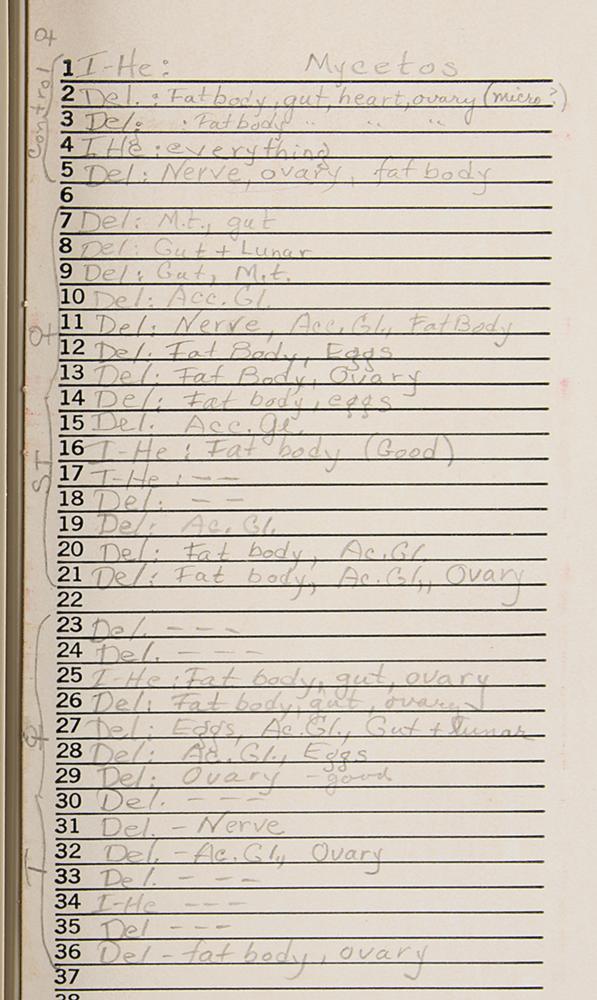 Control ♀
1 I-He: Mycetos
2 Del. : Fatbody, gut, heart, ovary (micro?)
3 Del: : Fatbody " " "
4 I He : everything
5 Del: Nerve, ovary, fat body
6
♀ ST
7 Del: M.t., gut
8 Del: Gut + Lunar
9 Del: Gut, M.t.
10 Del: Acc. Gl.
11 Del: Nerve, Acc. Gl., Fat Body
12 Del: Fat Body, Eggs
13 Del: Fat Body, Ovary
14 Del: Fat body, eggs
15 Del. Acc. gl.
16 I-He : Fat body (Good)
17 I-He : – –
18 Del: – –
19 Del: Ac. Gl.
20 Del: Fat body, Ac. Gl.
21 Del: Fat body, Ac. Gl., Ovary
22
♀ T
23 Del. – – –
24 Del. – – –
25 I-He : Fat body, gut, ovary
26 Del: Fat body, gut, ovary
27 Del: Eggs, Ac. Gl., Gut + Lunar
28 Del: Ac. Gl., Eggs
29 Del: Ovary – good
30 Del. – – –
31 Del. – Nerve
32 Del. – Ac. Gl., Ovary
33 Del. – – –
34 I-He – – –
35 Del – – –
36 Del – fat body, ovary
37
38